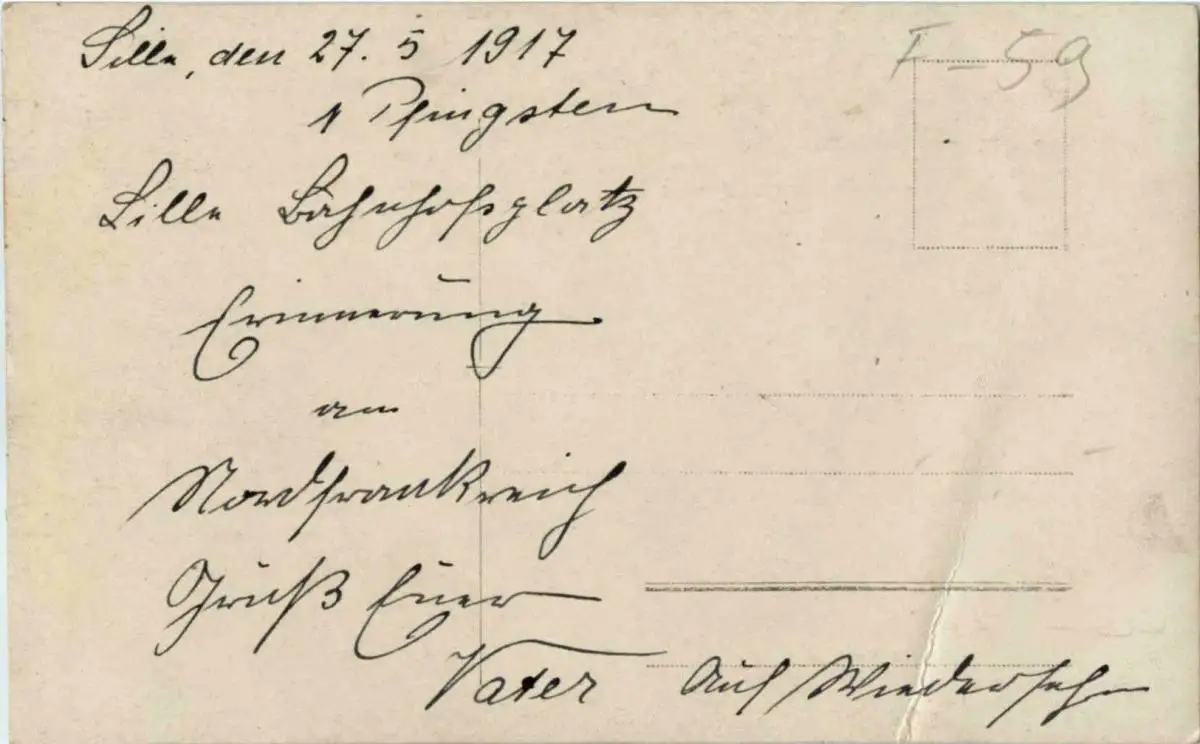 Lille, den 27. 5 1917
F-59
1 Pfingsten
Lille Bahnhofsplatz
Erinnerung
an
Nordfrankreich
Gruß Euer
Vater Auf Wiederseh